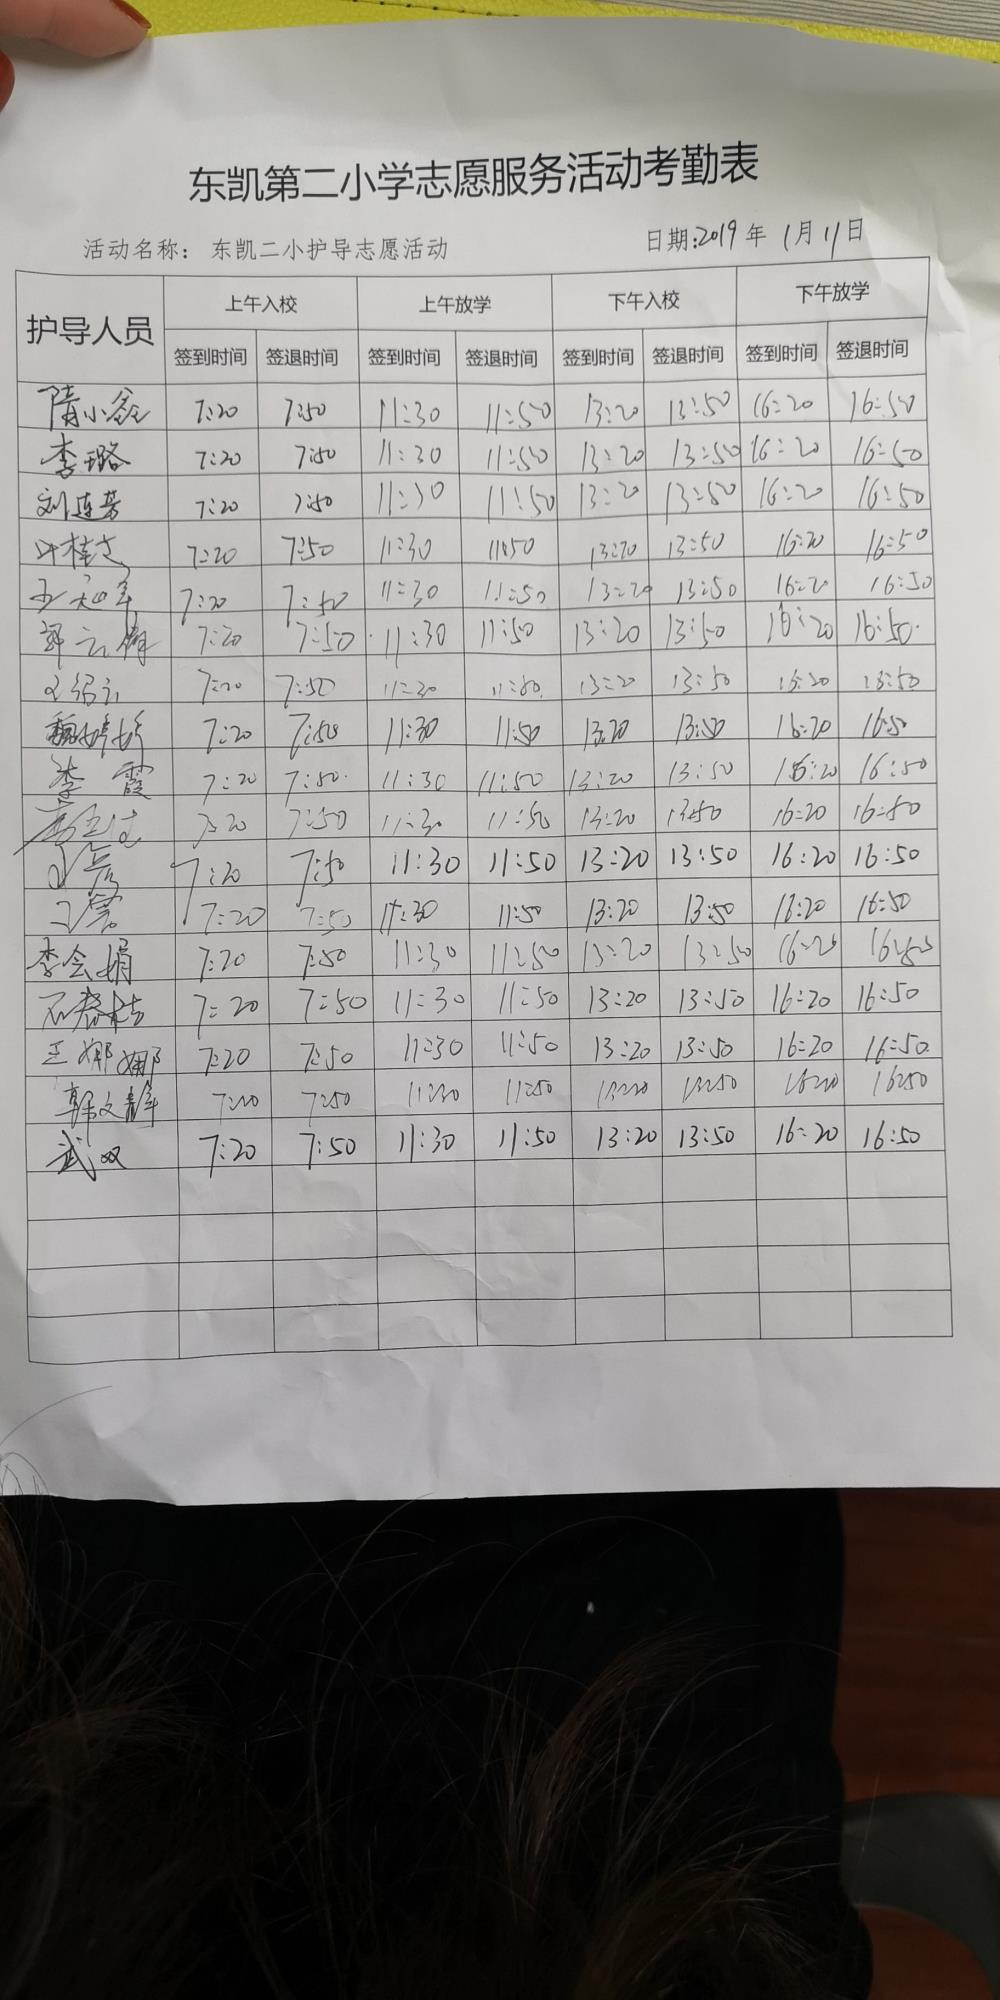 东凯第二小学志愿服务活动考勤表
活动名称： 东凯二小护导志愿活动 日期:2019年 1月 11日
护导人员 上午入校 上午放学 下午入校 下午放学
签到时间 签退时间 签到时间 签退时间 签到时间 签退时间 签到时间 签退时间
隋小 7:20 7:50 11:30 11:50 13:20 13:50 16:20 16:50
李璐 7:20 7:50 11:30 11:50 13:20 13:50 16:20 16:50
刘莲芳 7:20 7:50 11:30 11:50 13:20 13:50 16:20 16:50
叶桂 7:20 7:50 11:30 11:50 13:20 13:50 16:20 16:50
7:20 7:50 11:30 11:50 13:20 13:50 16:20 16:50
郭云 7:20 7:50 11:30 11:50 13:20 13:50 16:20 16:50
7:20 7:50 11:30 11:50 13:20 13:50 16:20 16:50
魏婷婷 7:20 7:50 11:30 11:50 13:20 13:50 16:20 16:50
李霞 7:20 7:50 11:30 11:50 13:20 13:50 16:20 16:50
7:20 7:50 11:30 11:50 13:20 13:50 16:20 16:50
7:20 7:50 11:30 11:50 13:20 13:50 16:20 16:50
7:20 7:50 11:30 11:50 13:20 13:50 16:20 16:50
李会娟 7:20 7:50 11:30 11:50 13:20 13:50 16:20 16:50
石春 7:20 7:50 11:30 11:50 13:20 13:50 16:20 16:50
王娜娜 7:20 7:50 11:30 11:50 13:20 13:50 16:20 16:50
韩文静 7:20 7:50 11:30 11:50 13:20 13:50 16:20 16:50
武双 7:20 7:50 11:30 11:50 13:20 13:50 16:20 16:50